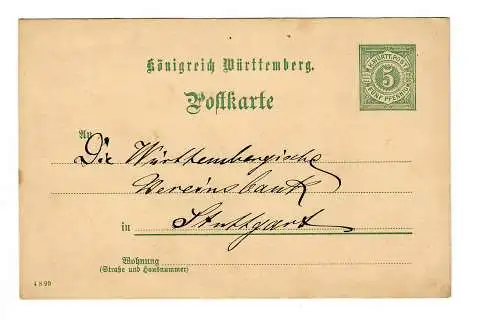 Königreich Württemberg.
Postkarte
WÜRTT. POST
5
FÜNF PFENNIG
An
Die Württembergische
Vereinsbank
in Stuttgart
Wohnung
(Straße und Hausnummer)
4 8 90